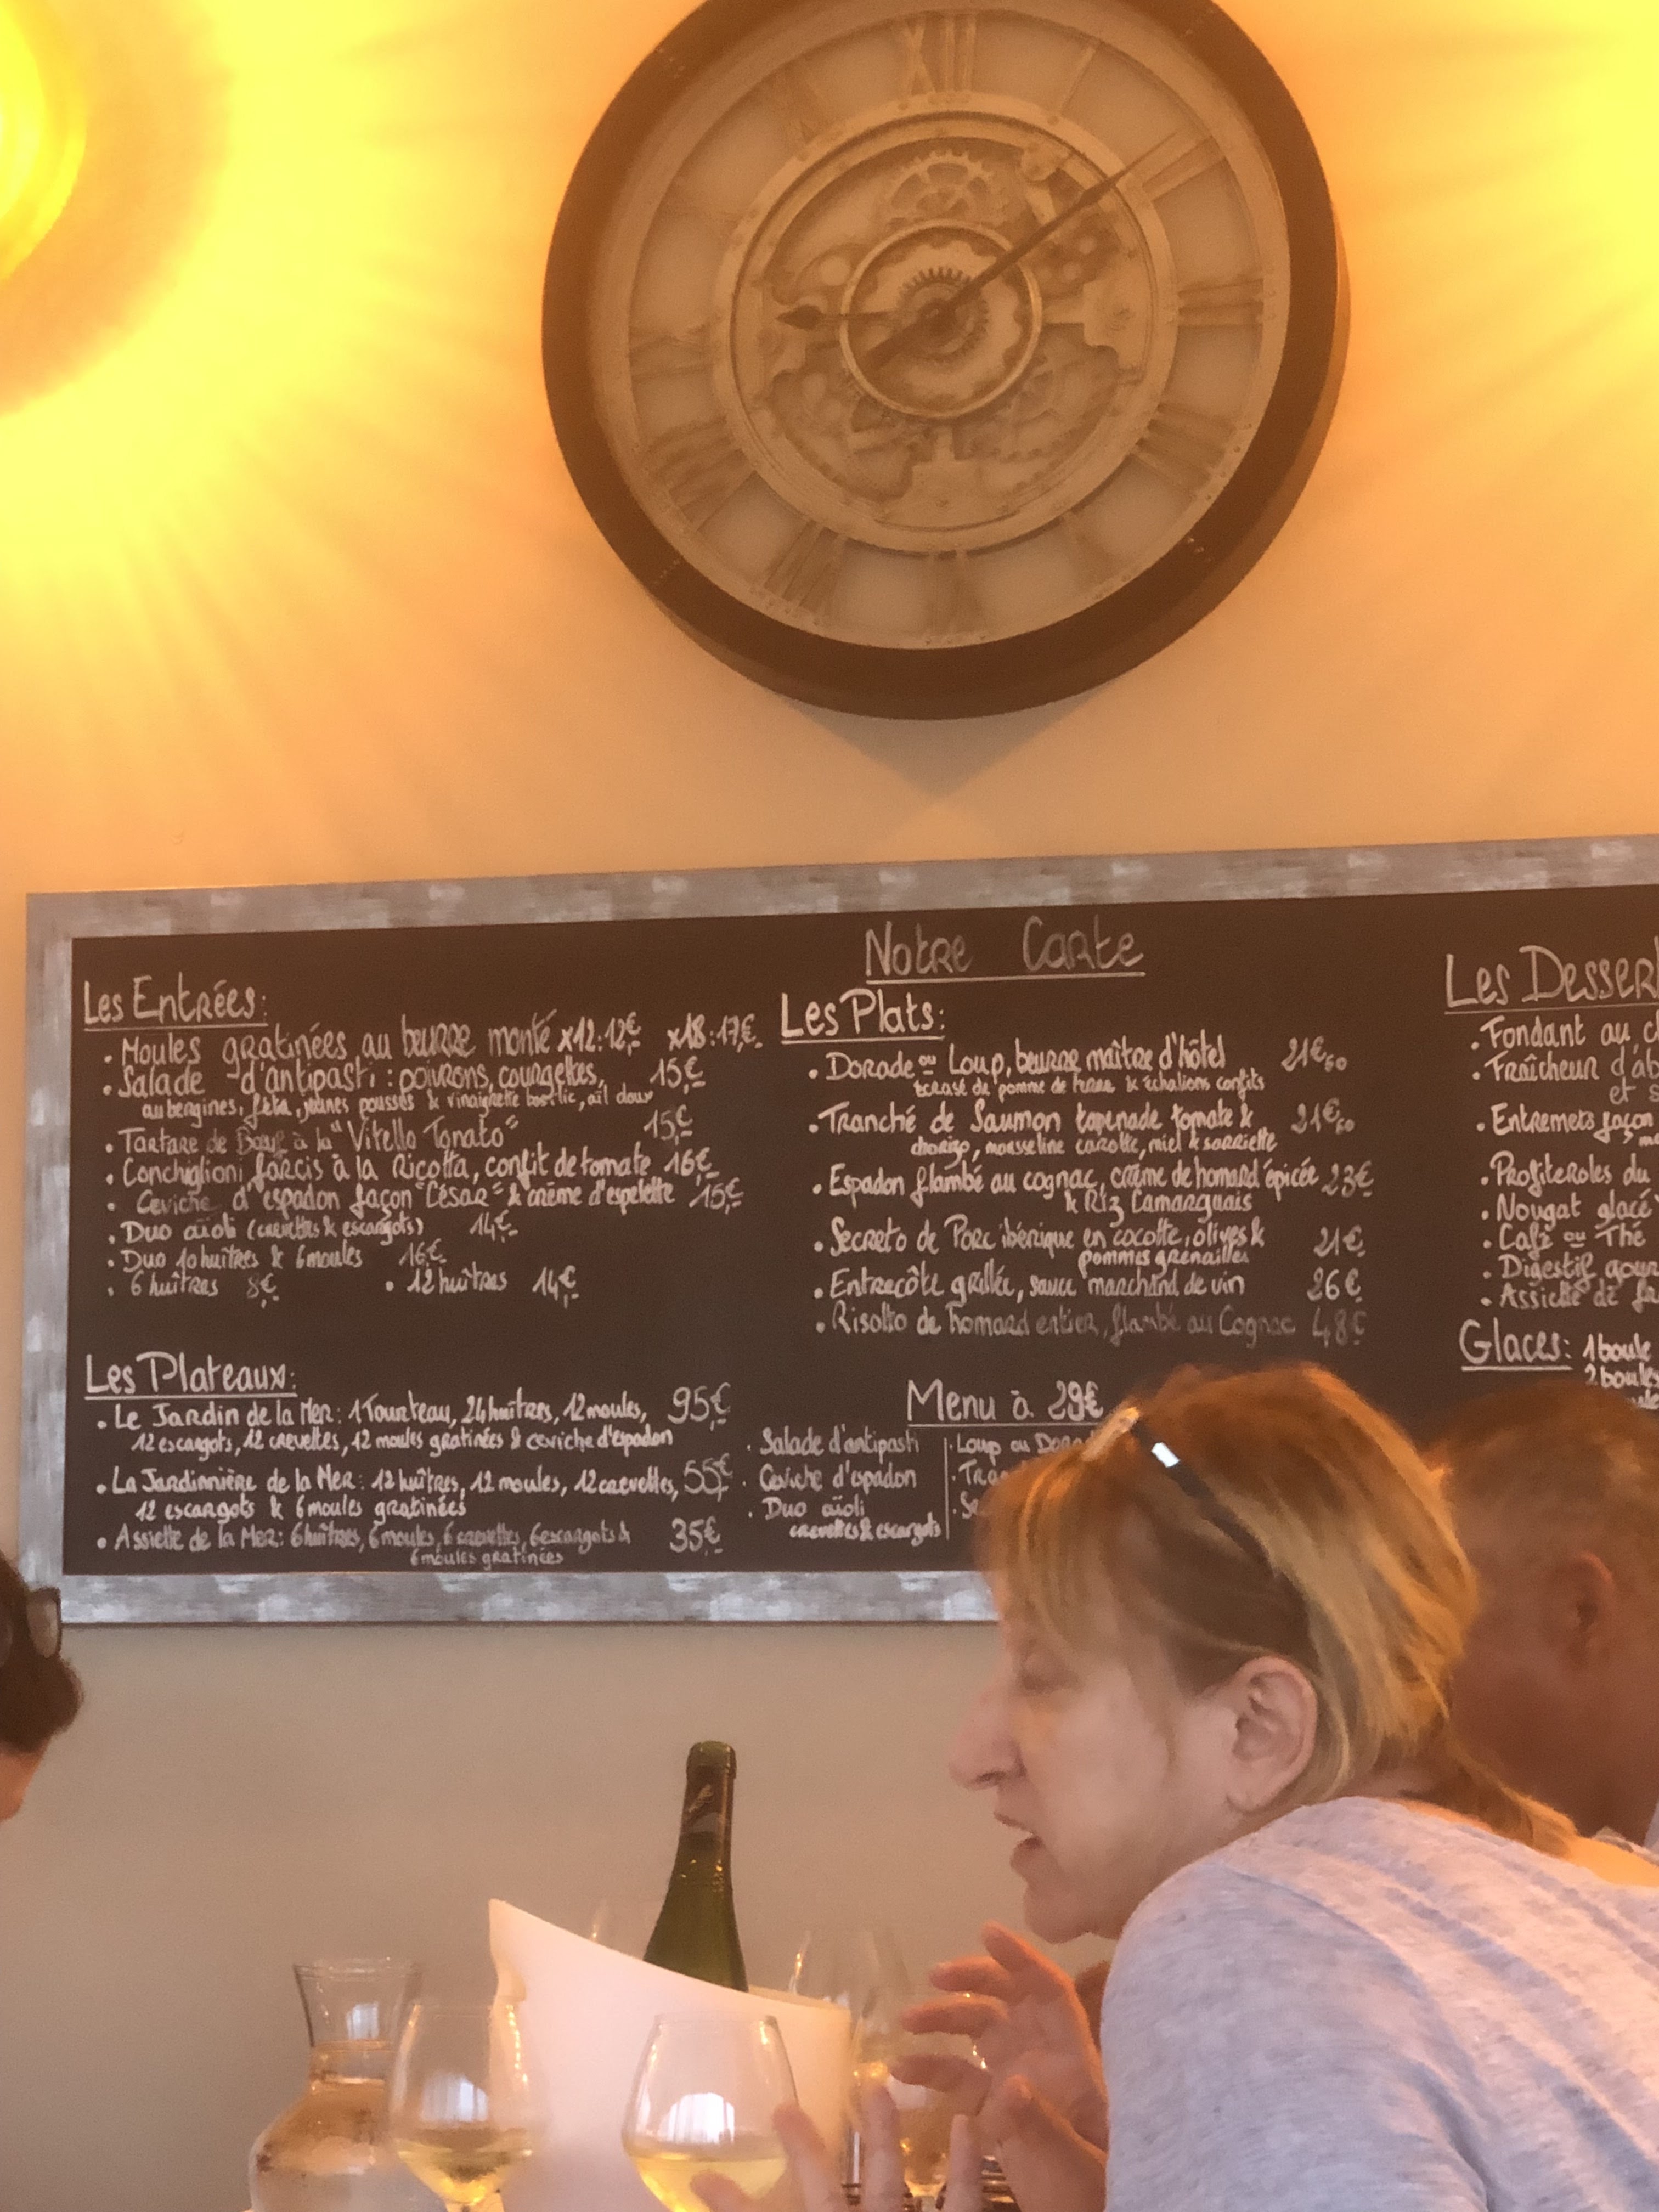 XII
Notre Carte
Les Entrées:
• Moules gratinées au beurre monté x12:12€ x18:17€
• Salade d'antipasti: poivrons, courgettes, 15€
aubergines, feta, jeunes pousses & vinaigrette basilic, aïl doux
• Tartare de Bœuf à la "Vitello Tonato" 15€
• Conchiglioni farcis à la Ricotta, confit de tomate 16€
• Ceviche d'espadon façon "César" & crème d'espelette 15€
• Duo aïoli (crevettes & escargots) 14€
• Duo 10 huîtres & 6 moules 16€
• 6 huîtres 8€ • 12 huîtres 14€
Les Plateaux:
• Le Jardin de la Mer: 1 Tourteau, 24 huîtres, 12 moules, 95€
12 escargots, 12 crevettes, 12 moules gratinées & ceviche d'espadon
• La Jardinnière de la Mer: 12 huîtres, 12 moules, 12 crevettes, 55€
12 escargots & 6 moules gratinées
• Assiette de la Mer: 6 huîtres, 6 moules, 6 crevettes, 6 escargots & 35€
6 moules gratinées
Les Plats:
• Dorade ou Loup, beurre maître d'hôtel 21€50
écrasé de pomme de terre & échalions confits
• Tranché de Saumon tapenade tomate & 21€50
chorizo, mousseline carotte, miel & sarriette
• Espadon flambé au cognac, crème de homard épicée 23€
& Riz Camarguais
• Secreto de Porc ibérique en cocotte, olives & 21€
pommes grenailles
• Entrecôte grillée, sauce marchand de vin 26€
• Risotto de homard entier, flambé au Cognac 48€
Menu à 29€
• Salade d'antipasti
• Ceviche d'espadon
• Duo aïoli
crevettes & escargots
• Loup ou
Les
• Fondant au
• Fraîcheur
et
• Entremets façon
• Profiteroles du
• Nougat glacé
• Café ou Thé
• Digestif
• Assiette de
Glaces: 1 boule
2 boules